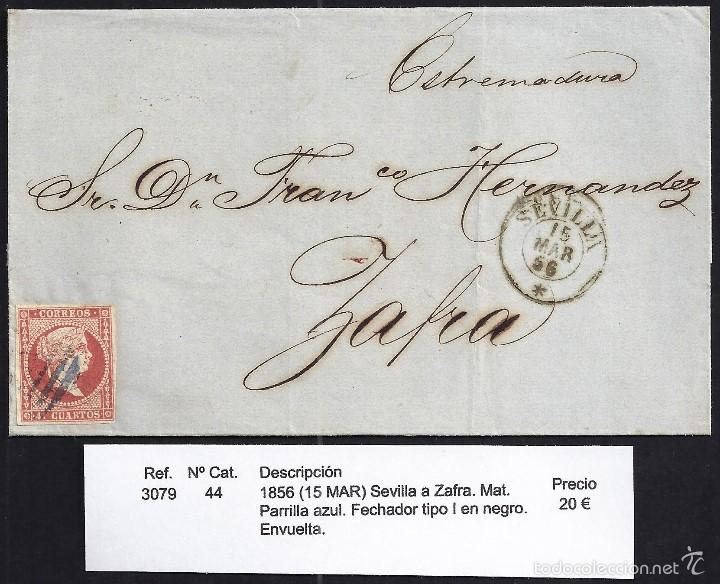 Estremadura
Sr. Dn. Franco Hernandez
SEVILLA
15
MAR
56
*
Zafra
CORREOS
4 CUARTOS
Ref. Nº Cat. Descripción Precio
3079 44 1856 (15 MAR) Sevilla a Zafra. Mat. 20 €
Parrilla azul. Fechador tipo I en negro.
Envuelta.
todocoleccion.net